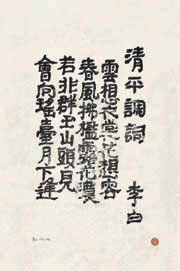 清平調詞 李白
雲想衣裳花想容
春風拂檻露花濃
若非群玉山頭見
會向瑤臺月下逢